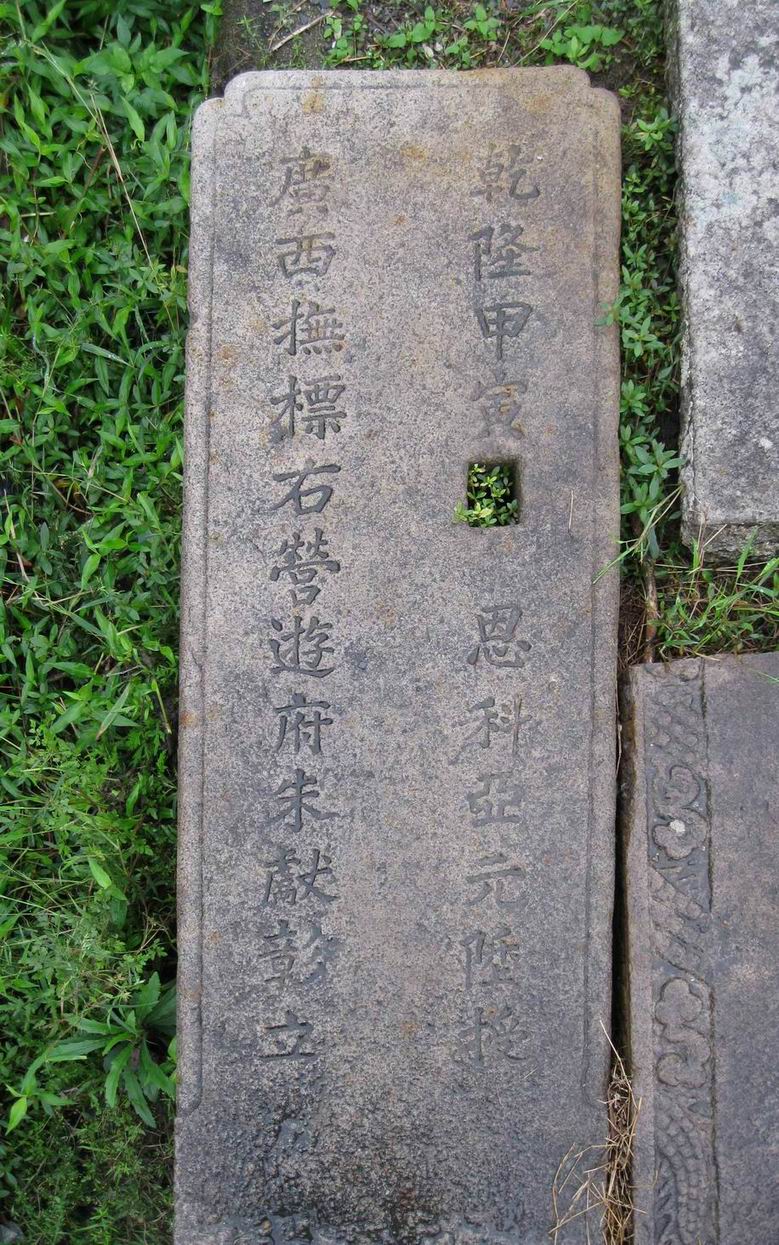 乾隆甲寅恩科亞元陞授
廣西撫標右營遊府朱獻彰立